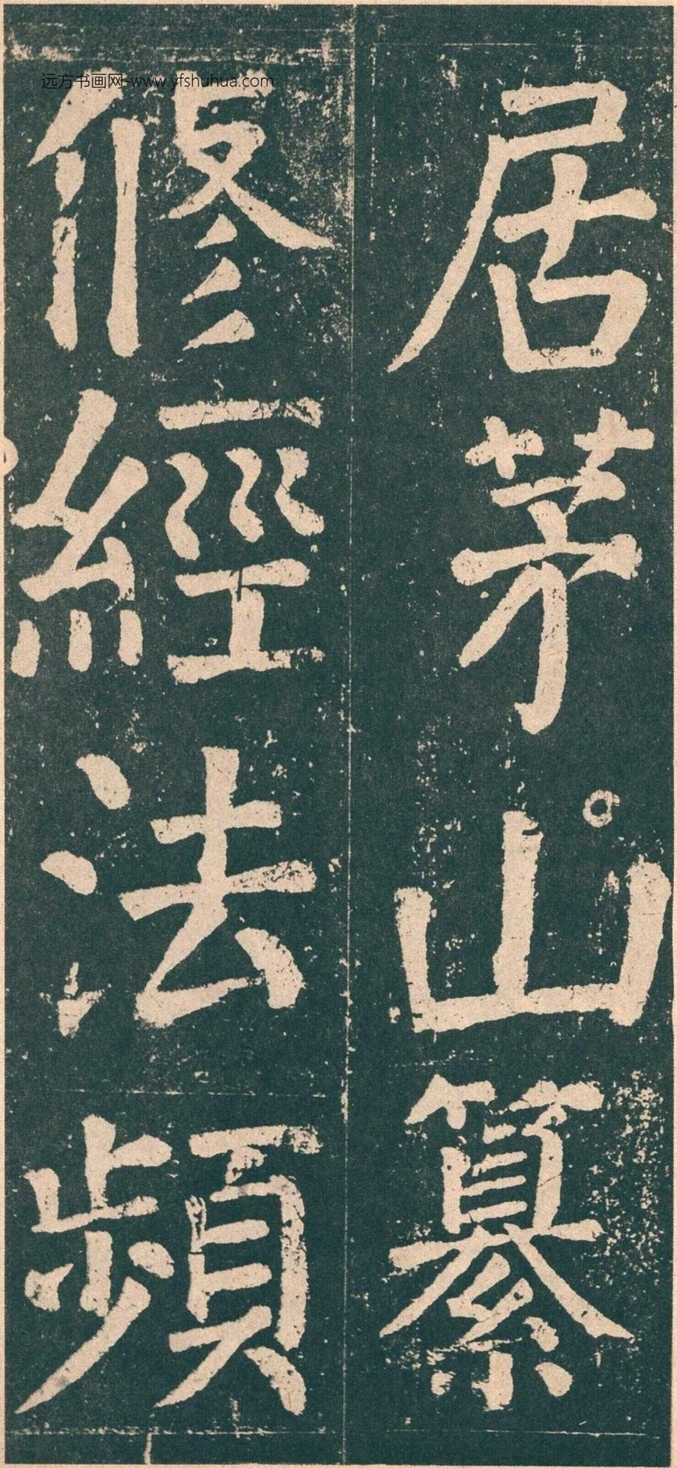 远方书画网-www.yfshuhua.com
居茅山纂
修經法頻